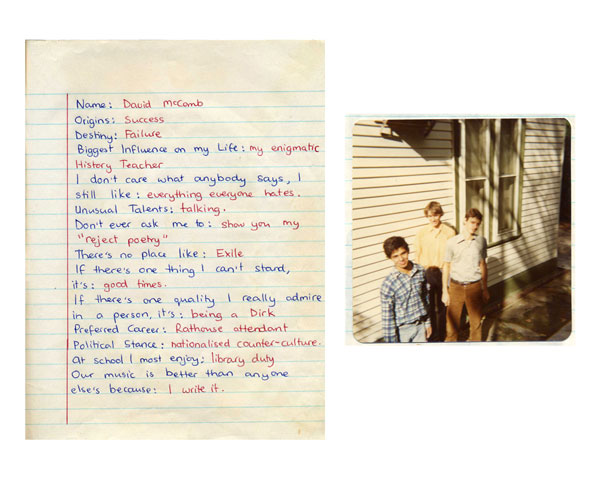 Name: David McComb
Origins: Success
Destiny: Failure
Biggest Influence on my Life: my enigmatic
History Teacher
I don't care what anybody says, I
still like: everything everyone hates.
Unusual Talents: talking.
Don't ever ask me to: show you my
"reject poetry"
There's no place like: Exile
If there's one thing I can't stand,
it's: good times.
If there's one quality I really admire
in a person, it's: being a Dirk
Preferred Career: Rathouse attendant
Political Stance: nationalised counter-culture.
At school I most enjoy: library duty
Our music is better than anyone
else's because: I write it.